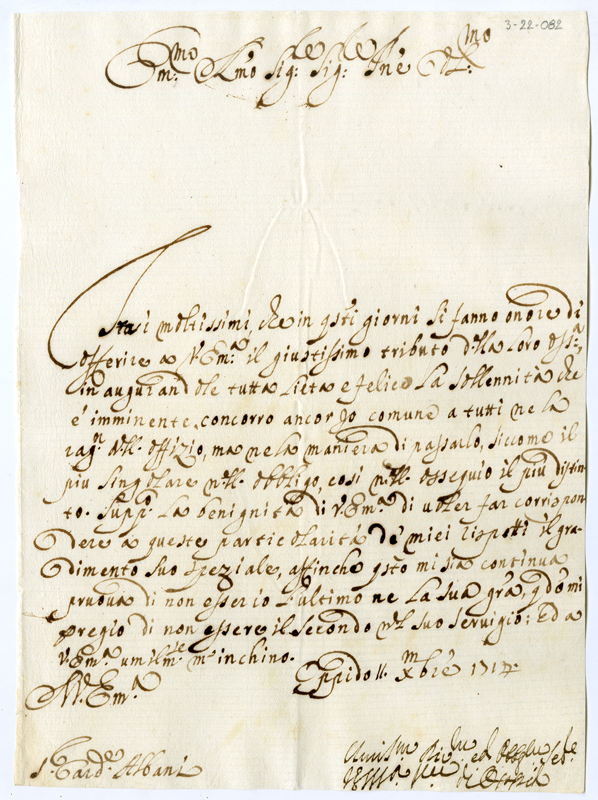 3-22-082
Em:mo Rmo Sig:re Sig:re Pne Col:mo
Trà i moltissimi, che in qsti giorni si fanno onore di
offerire a V. Em:a il giustissimo tributo della loro oss:a,
in augurandole tutta lieta e felice la sollennità che
è imminente, concorro ancor Io comune a tutti ne la
rag.n dell' offizio, ma ne la maniera di passarlo, siccome il
più singolare nell' obbligo, così nell' ossequio il più distin-
to. Supp.o la benignità di V. Em:a di voler far corrispon
dere a queste particolarità de' miei rispetti il gra-
dimento suo speziale, affinche qsto mi sia continua
pruova di non esser io l'ultimo ne la sua gra, qdo mi
pregio di non essere il secondo nel suo servigio: Ed a
V. Em:a umilm:te m' inchino.
Oppido 11. Xmbre 1714.
A V. Em:a
S.r Card:e Albani